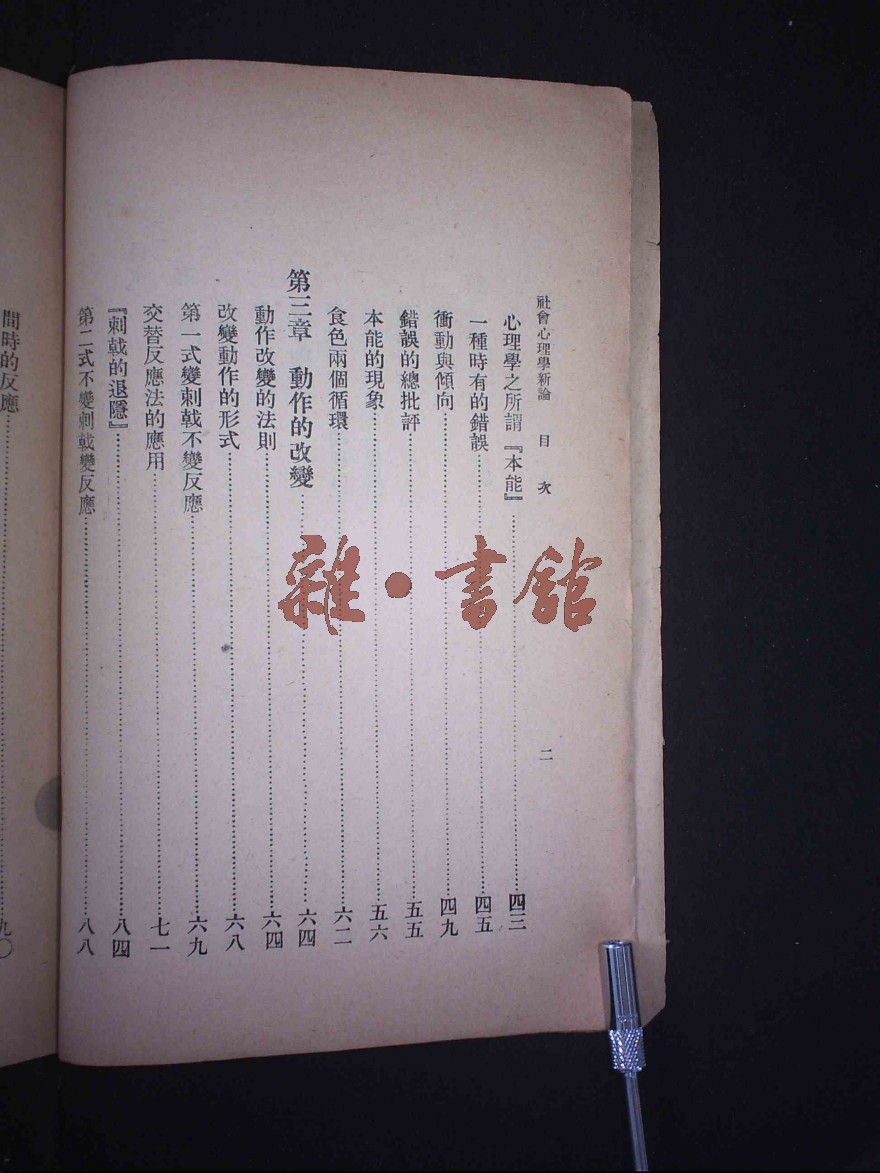 社會心理學新論 目次 二
心理學之所謂『本能』……四三
一種時有的錯誤……四五
衝動與傾向……四九
錯誤的總批評……五五
本能的現象……五六
食色兩個循環……六二
第三章 動作的改變……六四
動作改變的法則……六四
改變動作的形式……六八
第一式變刺戟不變反應……六九
交替反應法的應用……七一
『刺戟的退隱』……八四
第二式不變刺戟變反應……八八
間時的反應……九〇
雜·書館